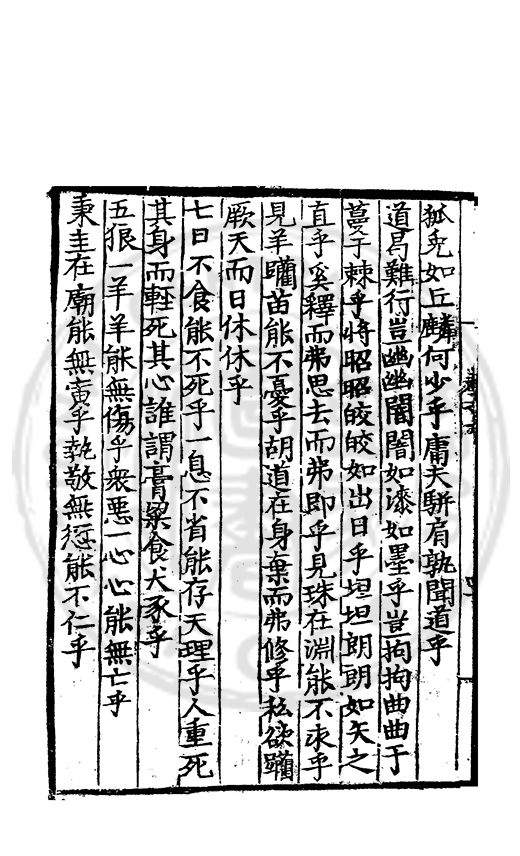 狐兎如丘麟何少乎庸夫駢肩孰聞道乎
道曷難行豈幽幽闇闇如漆如墨乎豈拘拘曲曲于
蔓于棘乎將昭昭皎皎如出日乎坦坦朗朗如矢之
直乎奚釋而弗思去而弗即乎見珠在淵能不求乎
見羊躪苗能不憂乎胡道在身棄而弗修乎私欲躪
厥天而日休休乎
七日不食能不死乎一息不省能存天理乎人重死
其身而輕死其心誰謂膏粱食犬豕乎
五狼一羊羊能無傷乎衆惡一心心能無亡乎
秉圭在廟能無寅乎執敬無愆能不仁乎